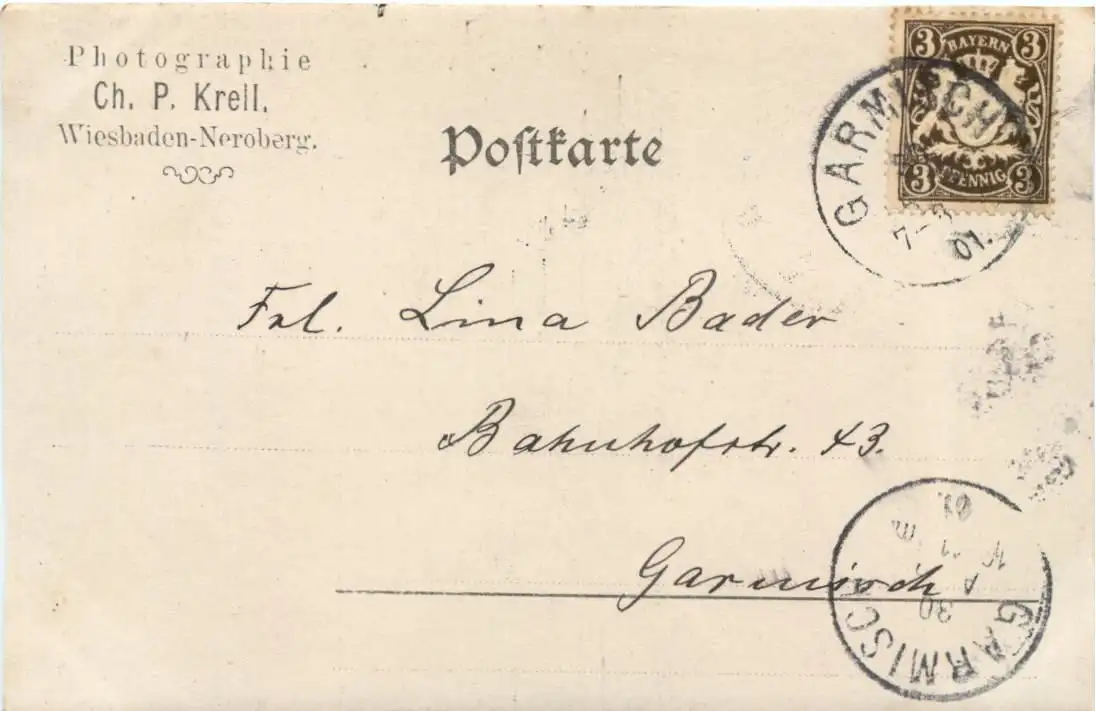 Photographie
Ch. P. Krell.
Wiesbaden-Neroberg.
Postkarte
3 BAYERN 3
3 PFENNIG 3
GARMISCH
7-8
01.
Frl. Lina Bader
Bahnhofstr. 43.
Garmisch
GARMISCH
30
A
01.